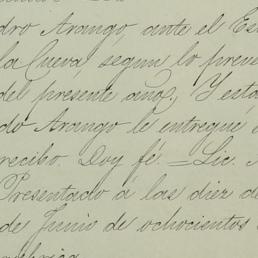 dro Arango, ante el Es
la Cueva, segun lo preve
del presente año; Y está
do Arango le entregué
recibo. Doy fé. = Lic.
Presentado á las diez de
de Junio de ochocientos